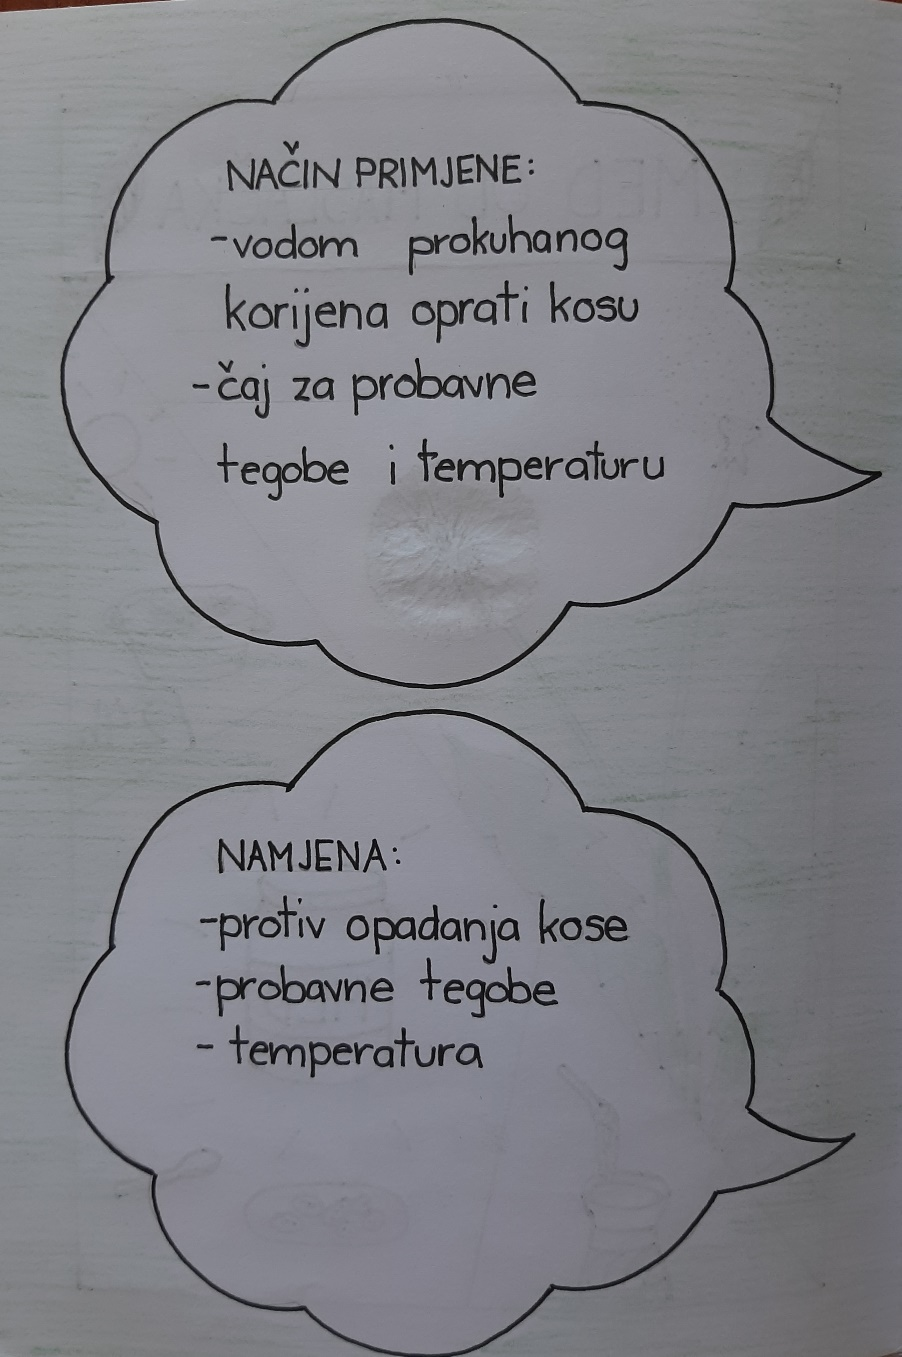 NAČIN PRIMJENE:
-vodom prokuhanog
korijena oprati kosu
-čaj za probavne
tegobe i temperaturu
NAMJENA:
-protiv opadanja kose
-probavne tegobe
- temperatura